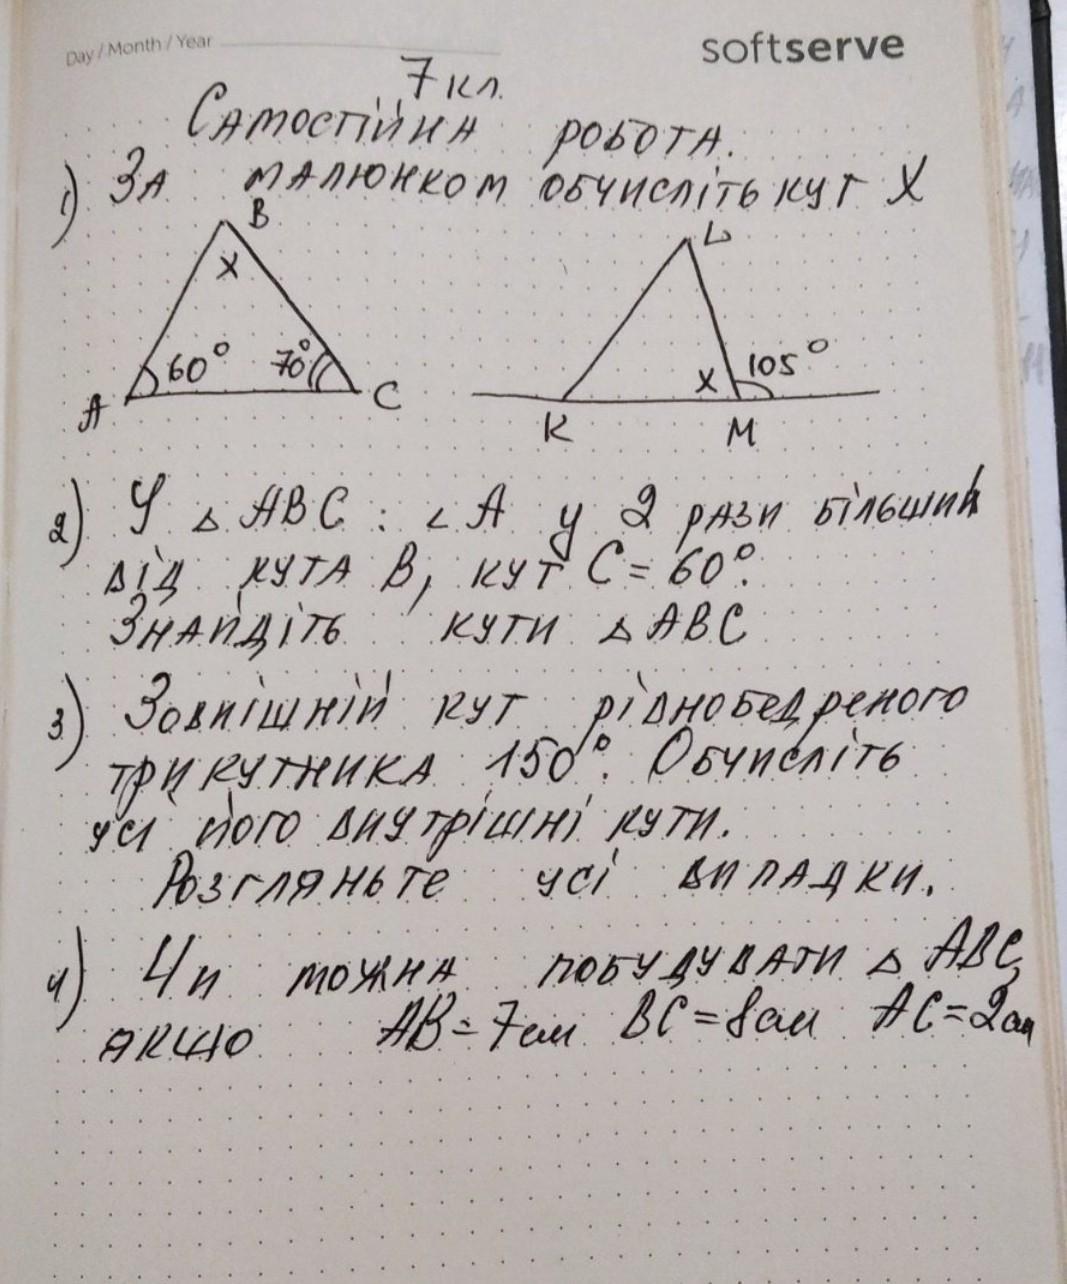 Day / Month / Year
softserve
7 кл.
Самостійна робота.
1) За малюнком обчисліть кут X
B
X
60° 70°
A C
L
X 105°
K M
2) У △ ABC : ∠A у 2 рази більший
від кута B, кут C = 60°.
Знайдіть кути △ ABC
3) Зовнішній кут рівнобедреного
трикутника 150°. Обчисліть
усі його внутрішні кути.
Розгляньте усі випадки.
4) Чи можна побудувати △ ABC,
якщо AB = 7 см BC = 8 см AC = 2 см